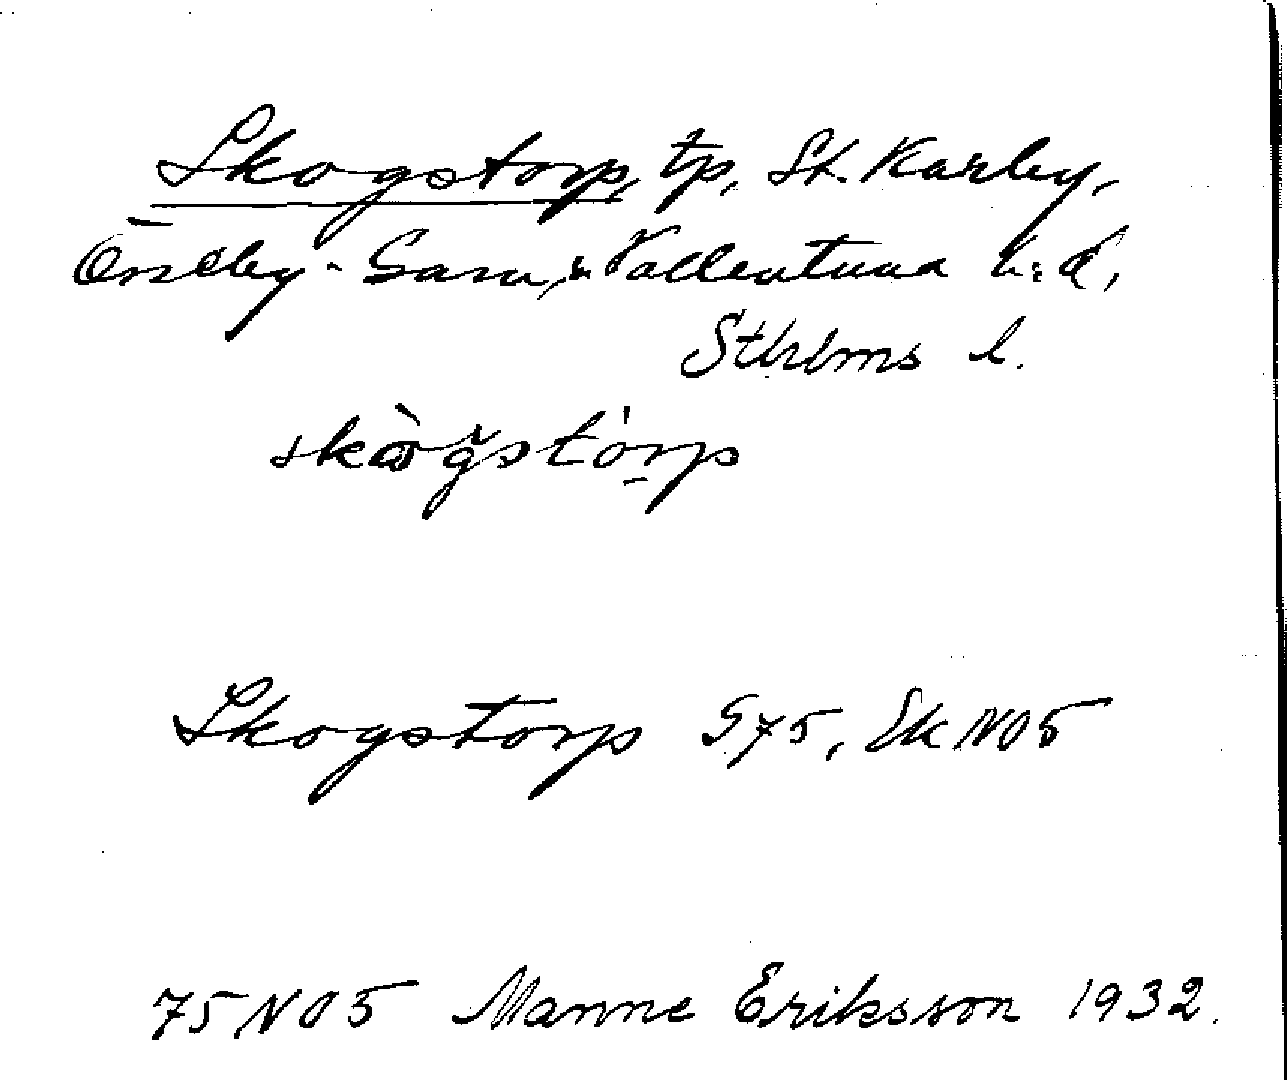 Skogstorp, tp, St. Karby,
Össeby-Garn, Vallentuna h:d,
Sthlms l.
skògstórp
Skogstorp G75, Ek NO5
75 NO5 Manne Eriksson 1932.